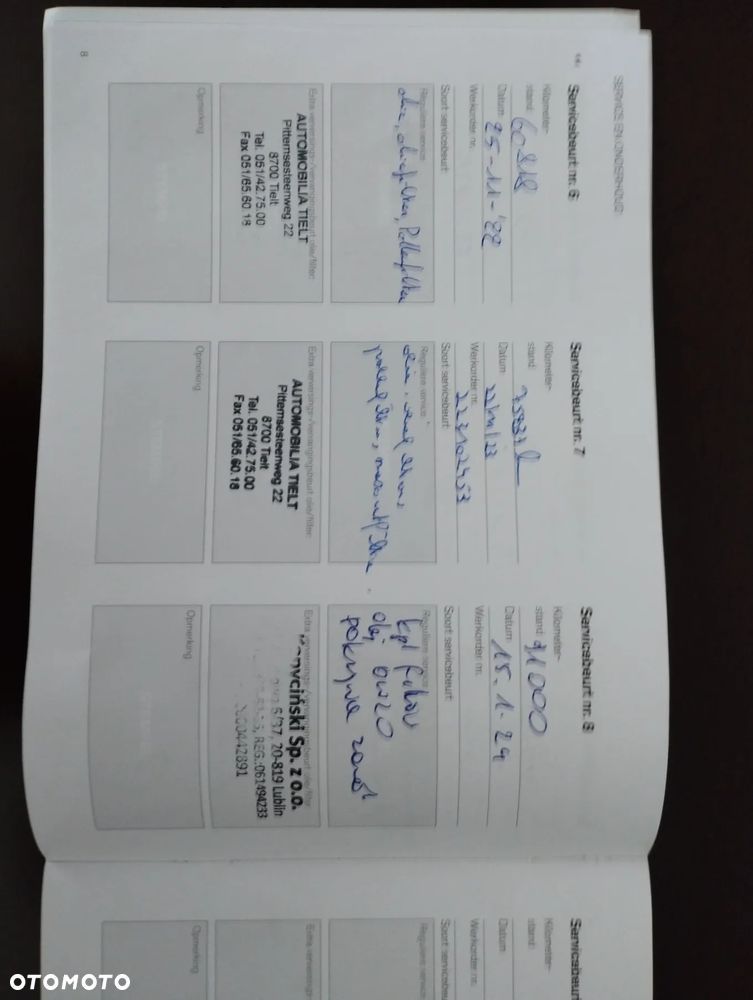 SERVICE EN ONDERHOUD
Servicebeurt nr. 6
Kilometer-
stand:
Datum: 25-11-'22
Werkorder nr.
Soort servicebeurt:
Reguliere service
olie, oliefilter, Pollenfilter
Extra verversings-/vervangingsbeurt olie/filter:
AUTOMOBILIA TIELT
Pittemsesteenweg 22
8700 Tielt
Tel. 051/42.75.00
Fax 051/65.60.18
Opmerking
Servicebeurt nr. 7
Kilometer-
stand:
Datum:
Werkorder nr.
Soort servicebeurt:
Reguliere service
Extra verversings-/vervangingsbeurt olie/filter:
AUTOMOBILIA TIELT
Pittemsesteenweg 22
8700 Tielt
Tel. 051/42.75.00
Fax 051/65.60.18
Opmerking
Servicebeurt nr. 8
Kilometer-
stand: 91000
Datum: 15.1-24
Werkorder nr.
Soort servicebeurt:
Reguliere service
kpl filtrów
olej 0W20
pokrywa
Extra verversings-/vervangingsbeurt olie/filter:
Sp. z o.o.
5/37, 20-819 Lublin
REG.:061494233
0000442891
Opmerking
8
Servicebeurt
Kilometer-
stand:
Datum:
Werkorder nr.
Soort servicebeurt:
Reguliere service
Extra
Opmerking
OTOMOTO